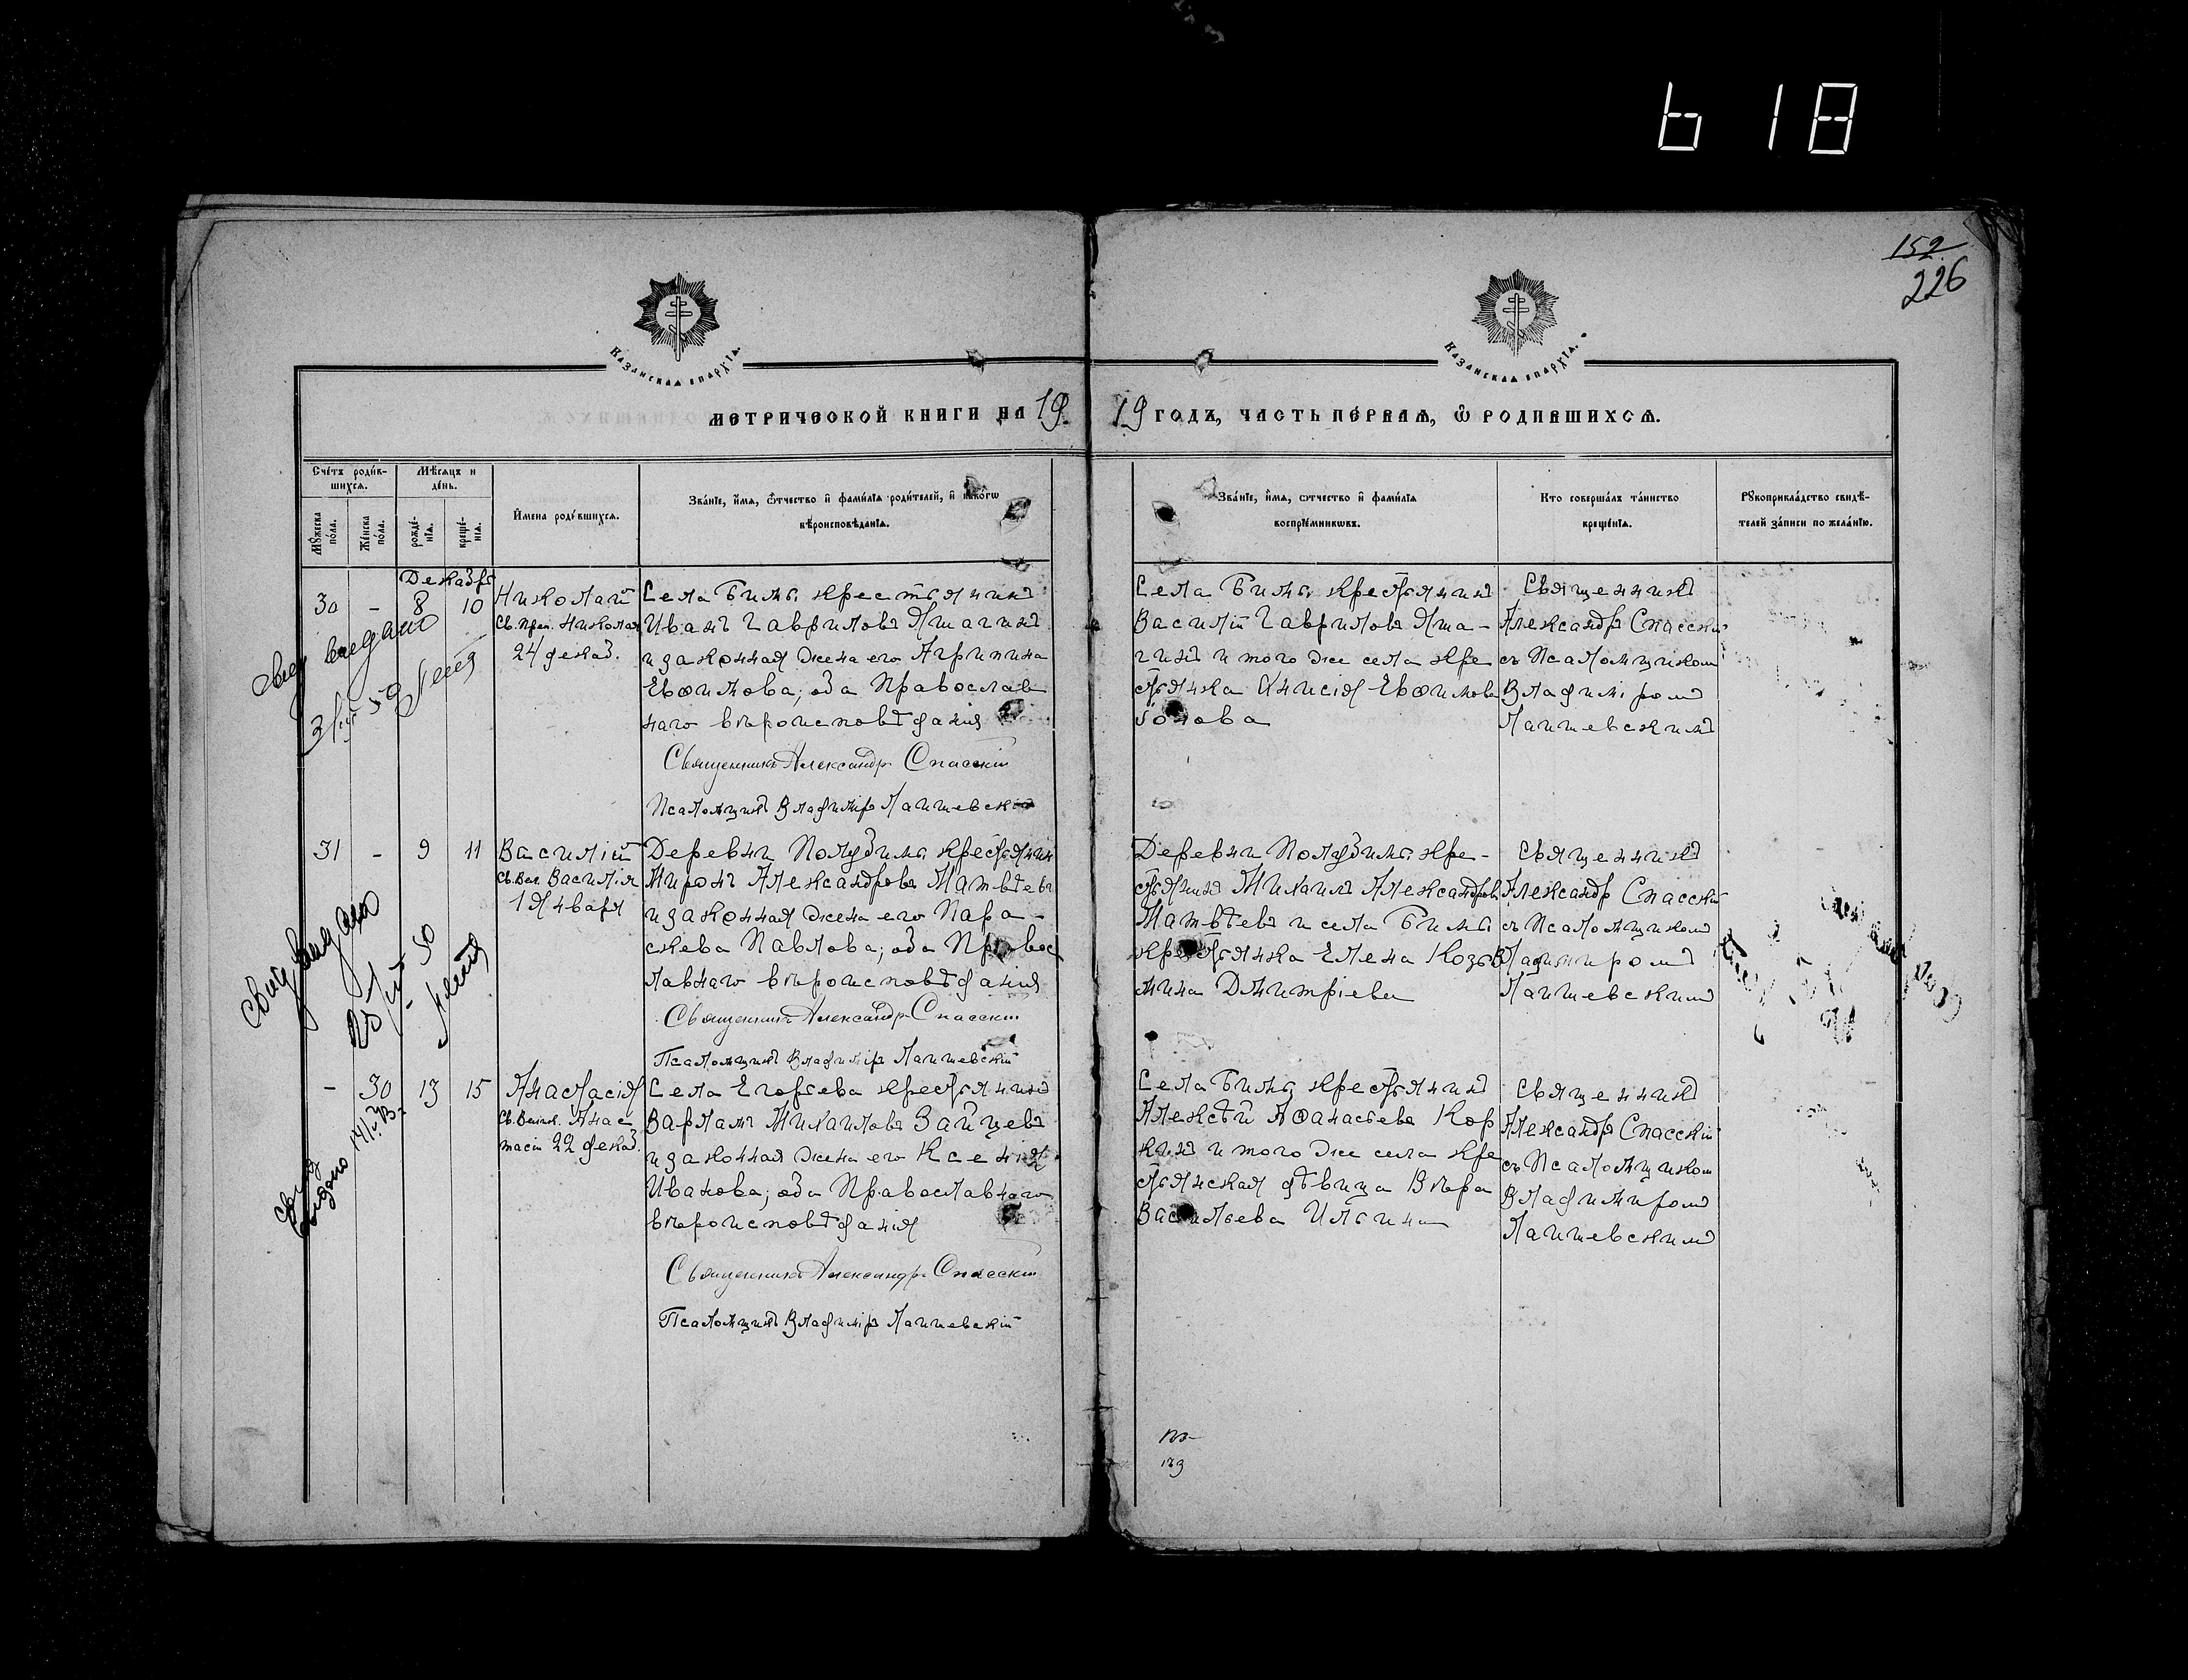 618
152
226
Казанская епархіѧ.
Казанская епархіѧ.
метрической книги на 1919 годъ, часть первая, ѡ родившихсѧ.
Счетъ родившихсѧ.
Мѣсяцъ и день.
Мужеска пола.
Женска пола.
рожденія.
крещенія.
Имена родившихсѧ.
Званіе, имѧ, ѻтчество и фамиліѧ родителей, и какогѡ
вѣроисповѣданіѧ.
Званіе, имѧ, ѻтчество и фамиліѧ
воспріемникѡвъ.
Кто совершалъ таинство
крещеніѧ.
Рꙋкоприкладство свидѣ-
телей записи по желанію.
Декабрь
30 - 8 10
Николай
Св. Николая
24 декаб.
Села Бимъ крестьянинъ
Иванъ Гавриловъ
и законная жена его Агрипина
Евѳимова, оба Православ
наго вѣроисповѣданія
Священникъ Александръ Спасскій
Псаломщикъ Владиміръ Лаишевскій
Села Бимъ крестьянинъ
Василій Гавриловъ
и того же села кре
стьянка Анисія Евѳимова
Священникъ
Александръ Спасскій
съ Псаломщикомъ
Владиміромъ
Лаишевскимъ
31 - 9 11
Василій
Св. Вас. Василія
1 Января
Деревни крестьянин
Миронъ Александровъ Матвѣевъ
и законная жена его Пара-
скева Павлова, оба Правос
лавнаго вѣроисповѣданія
Священникъ Александръ Спасскій
Псаломщикъ Владиміръ Лаишевскій
Деревни кре-
стьянинъ Михаилъ Александровъ
Матвѣевъ и села Бимъ
крестьянка Елена Козь
мина Дмитріева
Священникъ
Александръ Спасскій
съ Псаломщикомъ
Владимиромъ
Лаишевскимъ
- 30 13 15
Анастасія
Св. Велик. Анас
тасіи 22 декаб.
Села Егорьева крестьянинъ
Варламъ Михаиловъ Зайцевъ
и законная жена его Ксенія
Иванова, оба Православнаго
вѣроисповѣданія
Священникъ Александръ Спасскій
Псаломщикъ Владиміръ Лаишевскій
Села Бимъ крестьянинъ
Алексѣй Аѳанасьевъ Кор
кинъ и того же села кре
стьянская дѣвица Вѣра
Васильева Ильина
Священникъ
Александръ Спасскій
съ Псаломщиком
Владимиромъ
Лаишевскимъ